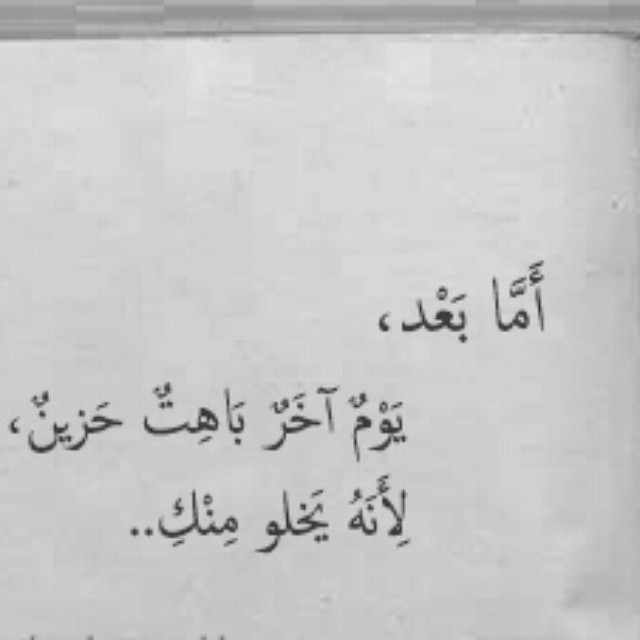 أَمَّا بَعْد،
يَوْمٌ آخَرٌ بَاهِتٌ حَزينٌ،
لِأَنَهُ يَخلو مِنْكِ..